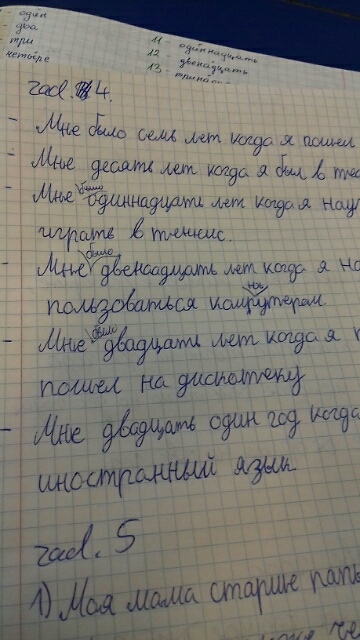 - один
- два
три
четыре
11 - одиннадцать
12 - двенадцать
13 -
zad. 4.
- Мне было семь лет когда я пошел
- Мне десять лет когда я был в
- Мне было одиннадцать лет когда я
играть в теннис.
- Мне было двенаадцать лет когда я
пользоваться компютером
- Мне было двадцать лет когда я
пошел на дискотеку
- Мне двадцать один год когда
иностранный язык
zad. 5
1) Моя мама старше папы